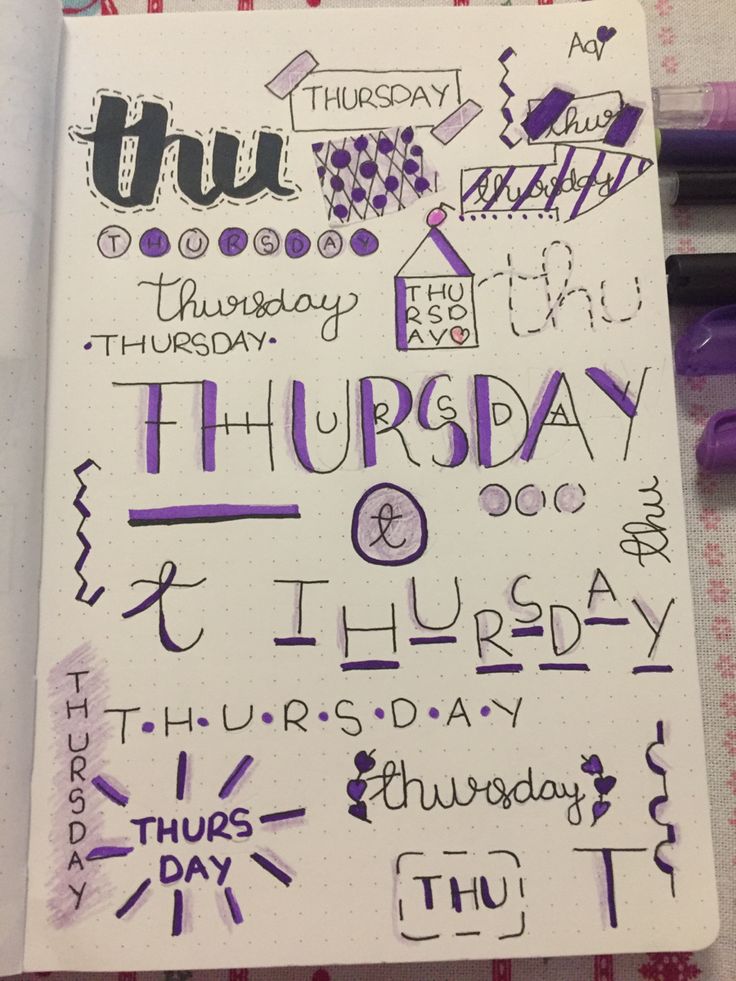 THURSDAY
thu
thur
thursday
THURSDAY
thursday
THU
RSD
AY
thu
·THURSDAY·
THURSDAY
URSDA
t
thu
t
THURSDAY
THURSDAY
T·H·U·R·S·D·A·Y
THURS
DAY
thursday
THU
T